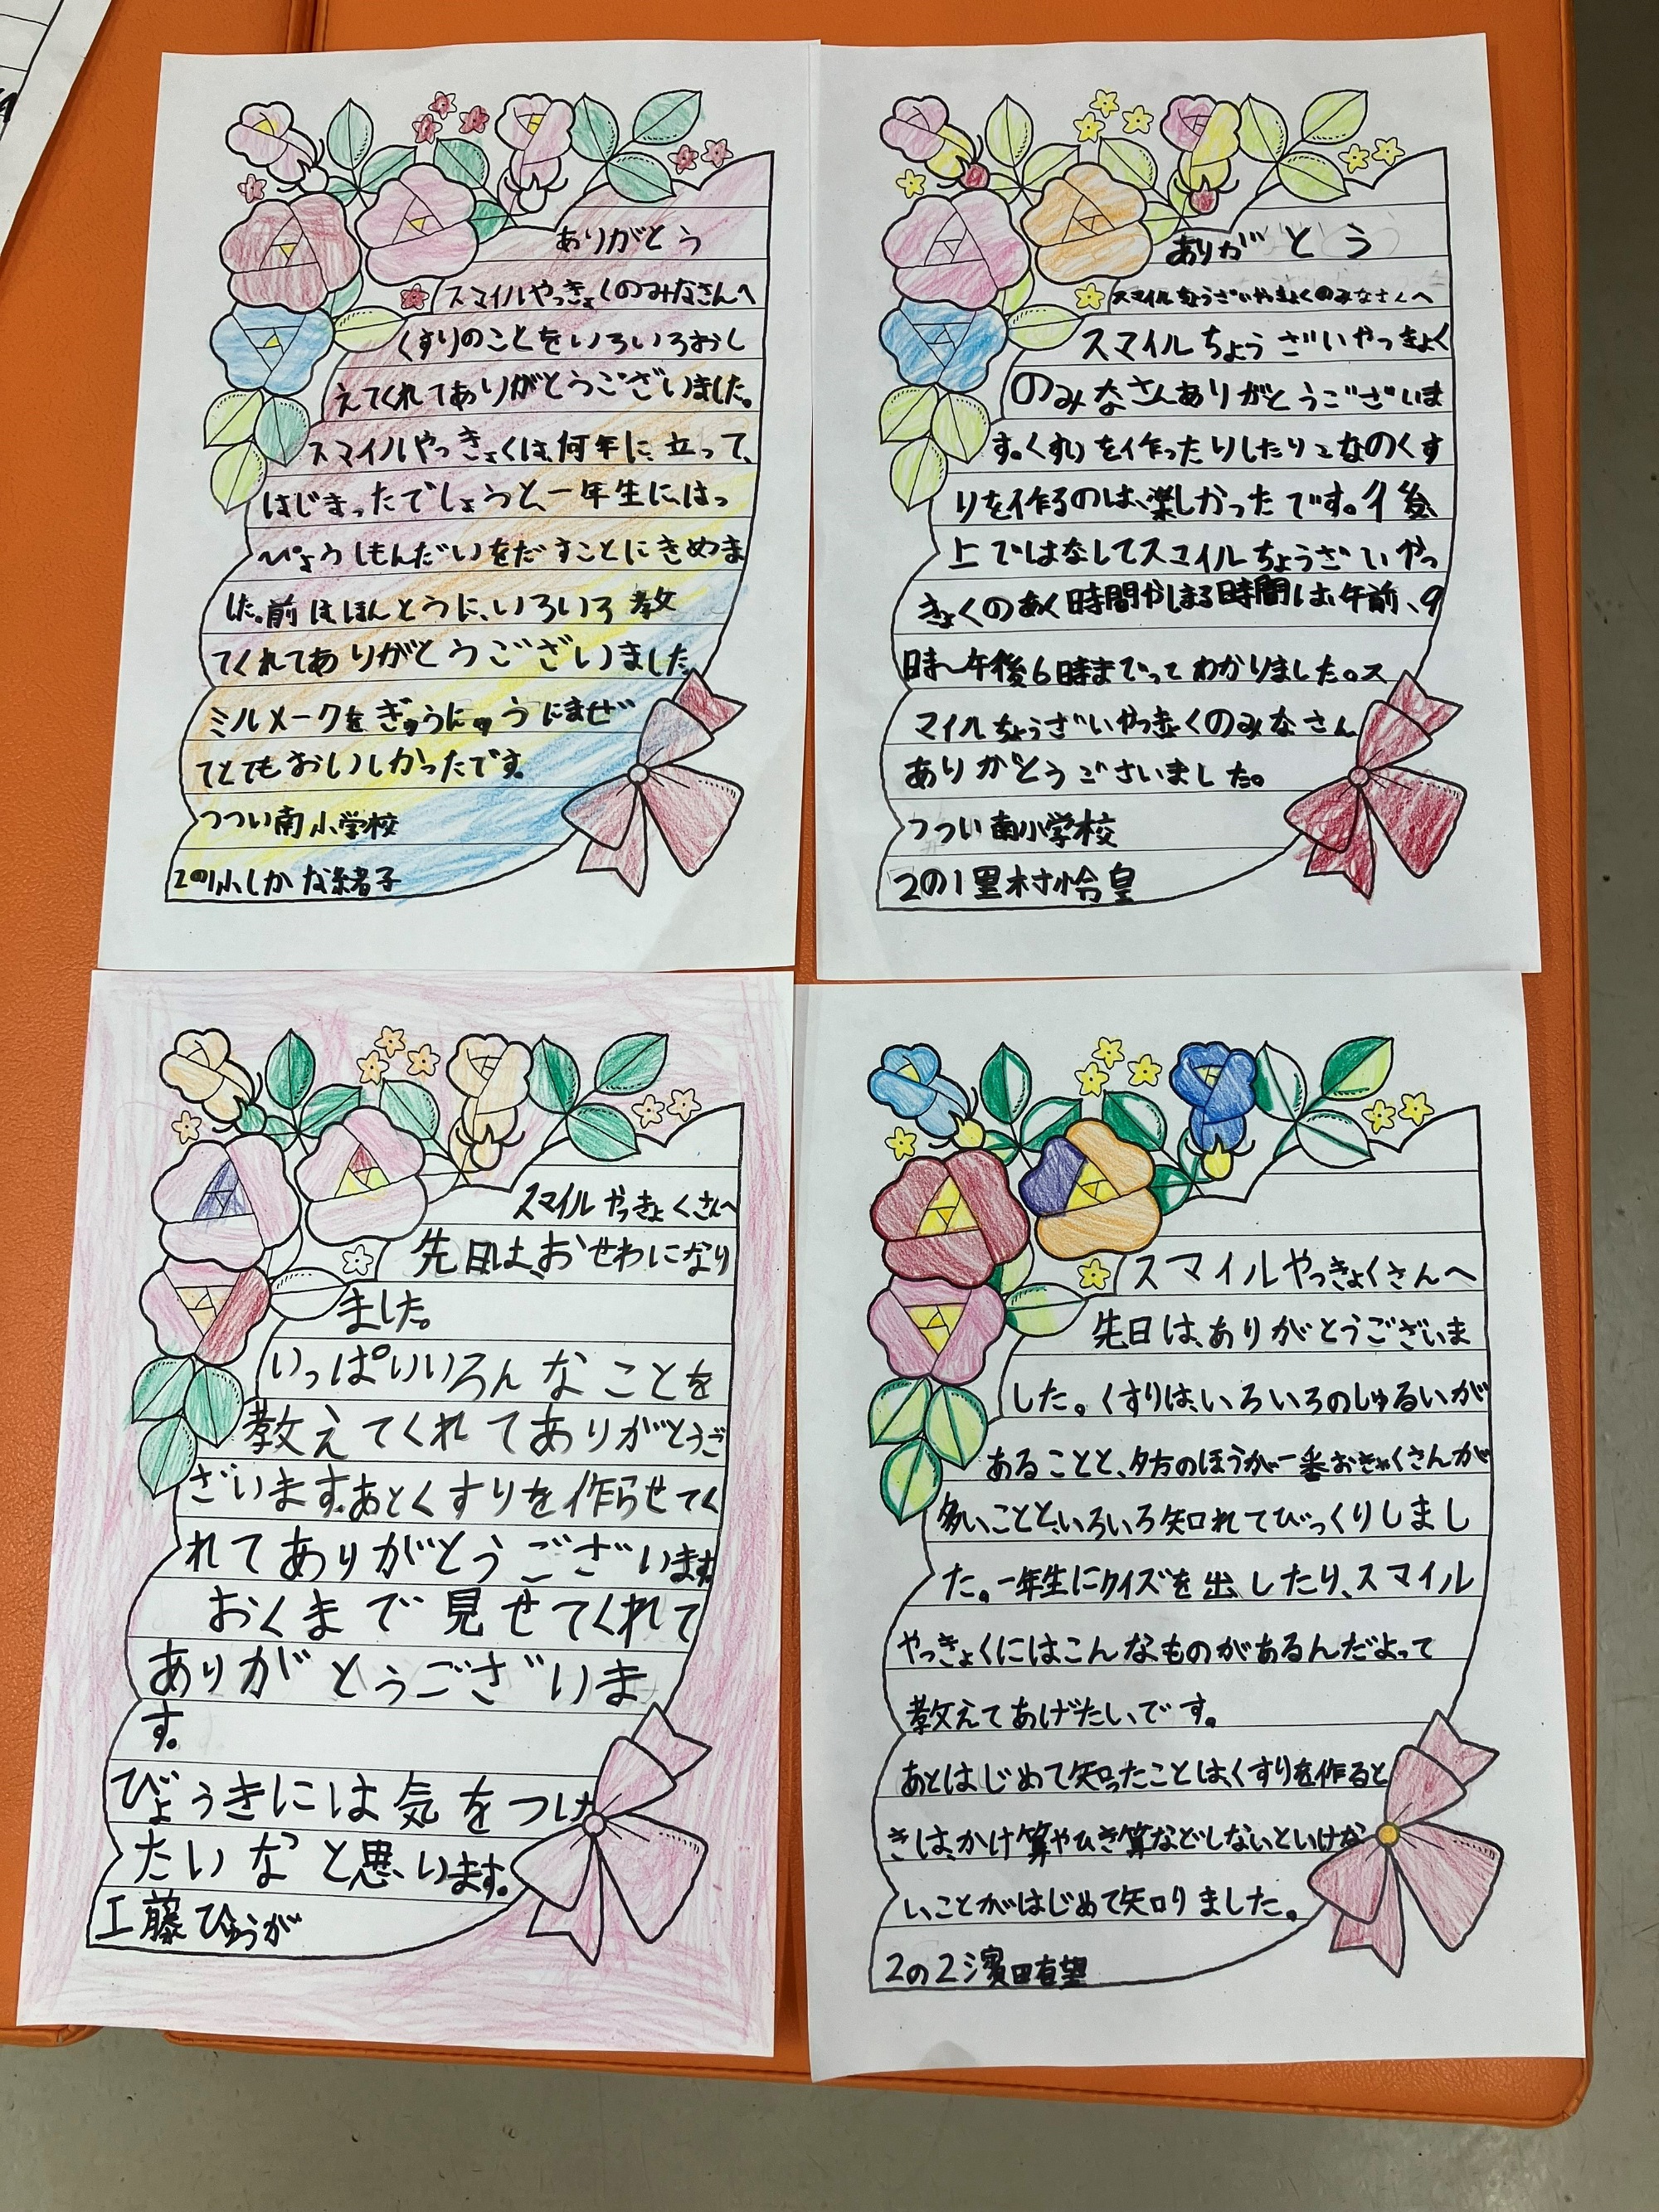 ありがとう
スマイルやっきょくのみなさんへ
くすりのことをいろいろおし
えてくれてありがとうございました。
スマイルやっきょくは、何年に、立って、
はじまったでしょうと、一年生に、はっ
ぴょうしもんだいをだすことにきめま
した。前はほんとうに、いろいろ教
てくれてありがとうございました。
ミルメークをぎゅうにゅうにまぜ
てとてもおいしかったです。
つつい南小学校
2の1
ありがとう
スマイルちょうざいやっきょくのみなさんへ
スマイルちょうざいやっきょく
のみなさんありがとうございま
す。くすりを作ったりしたりこなのくす
りを作るのは、楽しかったです。午後、
上ではなしてスマイルちょうざいやっ
きょくのあく時間かしまる時間は、午前、9
時〜午後6時までってわかりました。ス
マイルちょうざいやっきょくのみなさん
ありがとうございました。
つつい南小学校
2の1里村怜皇
スマイルやっきょくさんへ
先日は、おせわになり
ました。
いっぱいいろんなことを
教えてくれてありがとうご
ざいます。あとくすりを作らせてく
れてありがとうございます。
おくまで見せてくれて
ありがとうございま
す。
びょうきには気をつけ
たいなと思います。
工藤ひゅうが
スマイルやっきょくさんへ
先日は、ありがとうございま
した。くすりは、いろいろのしゅるいが
あることと、夕方のほうが一番おきゃくさんが
多いことと、いろいろ知れてびっくりしまし
た。一年生にクイズを出したり、スマイル
やっきょくにはこんなものがあるんだよって
教えてあげたいです。
あとはじめて知ったことは、くすりを作ると
きは、かけ算やひき算などしないといけな
いことがはじめて知りました。
2の2濱田有望